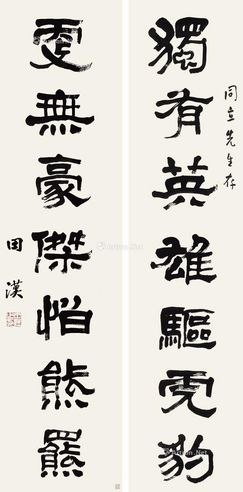 獨有英雄驅虎豹
同立先生存
更無豪傑怕熊羆
田漢